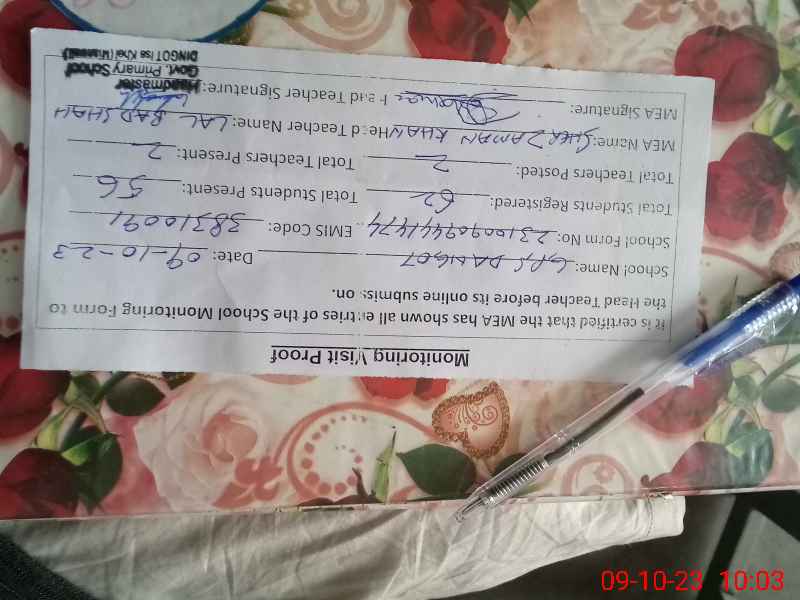 Monitoring Visit Proof
It is certified that the MEA has shown all entries of the School Monitoring Form to
the Head Teacher before its online submission.
School Name: G.P.S DANGOT Date: 09-10-23
School Form No: 23100909441474 EMIS Code: 38310091
Total Students Registered: 62 Total Students Present: 56
Total Teachers Posted: 2 Total Teachers Present: 2
MEA Name: SHER ZAMAN KHAN Head Teacher Name: LAL BAD SHAH
MEA Signature: Head Teacher Signature:
Headmaster
Govt. Primary School
DINGOT Isa Khel (Mianwali)
09-10-23 10:03